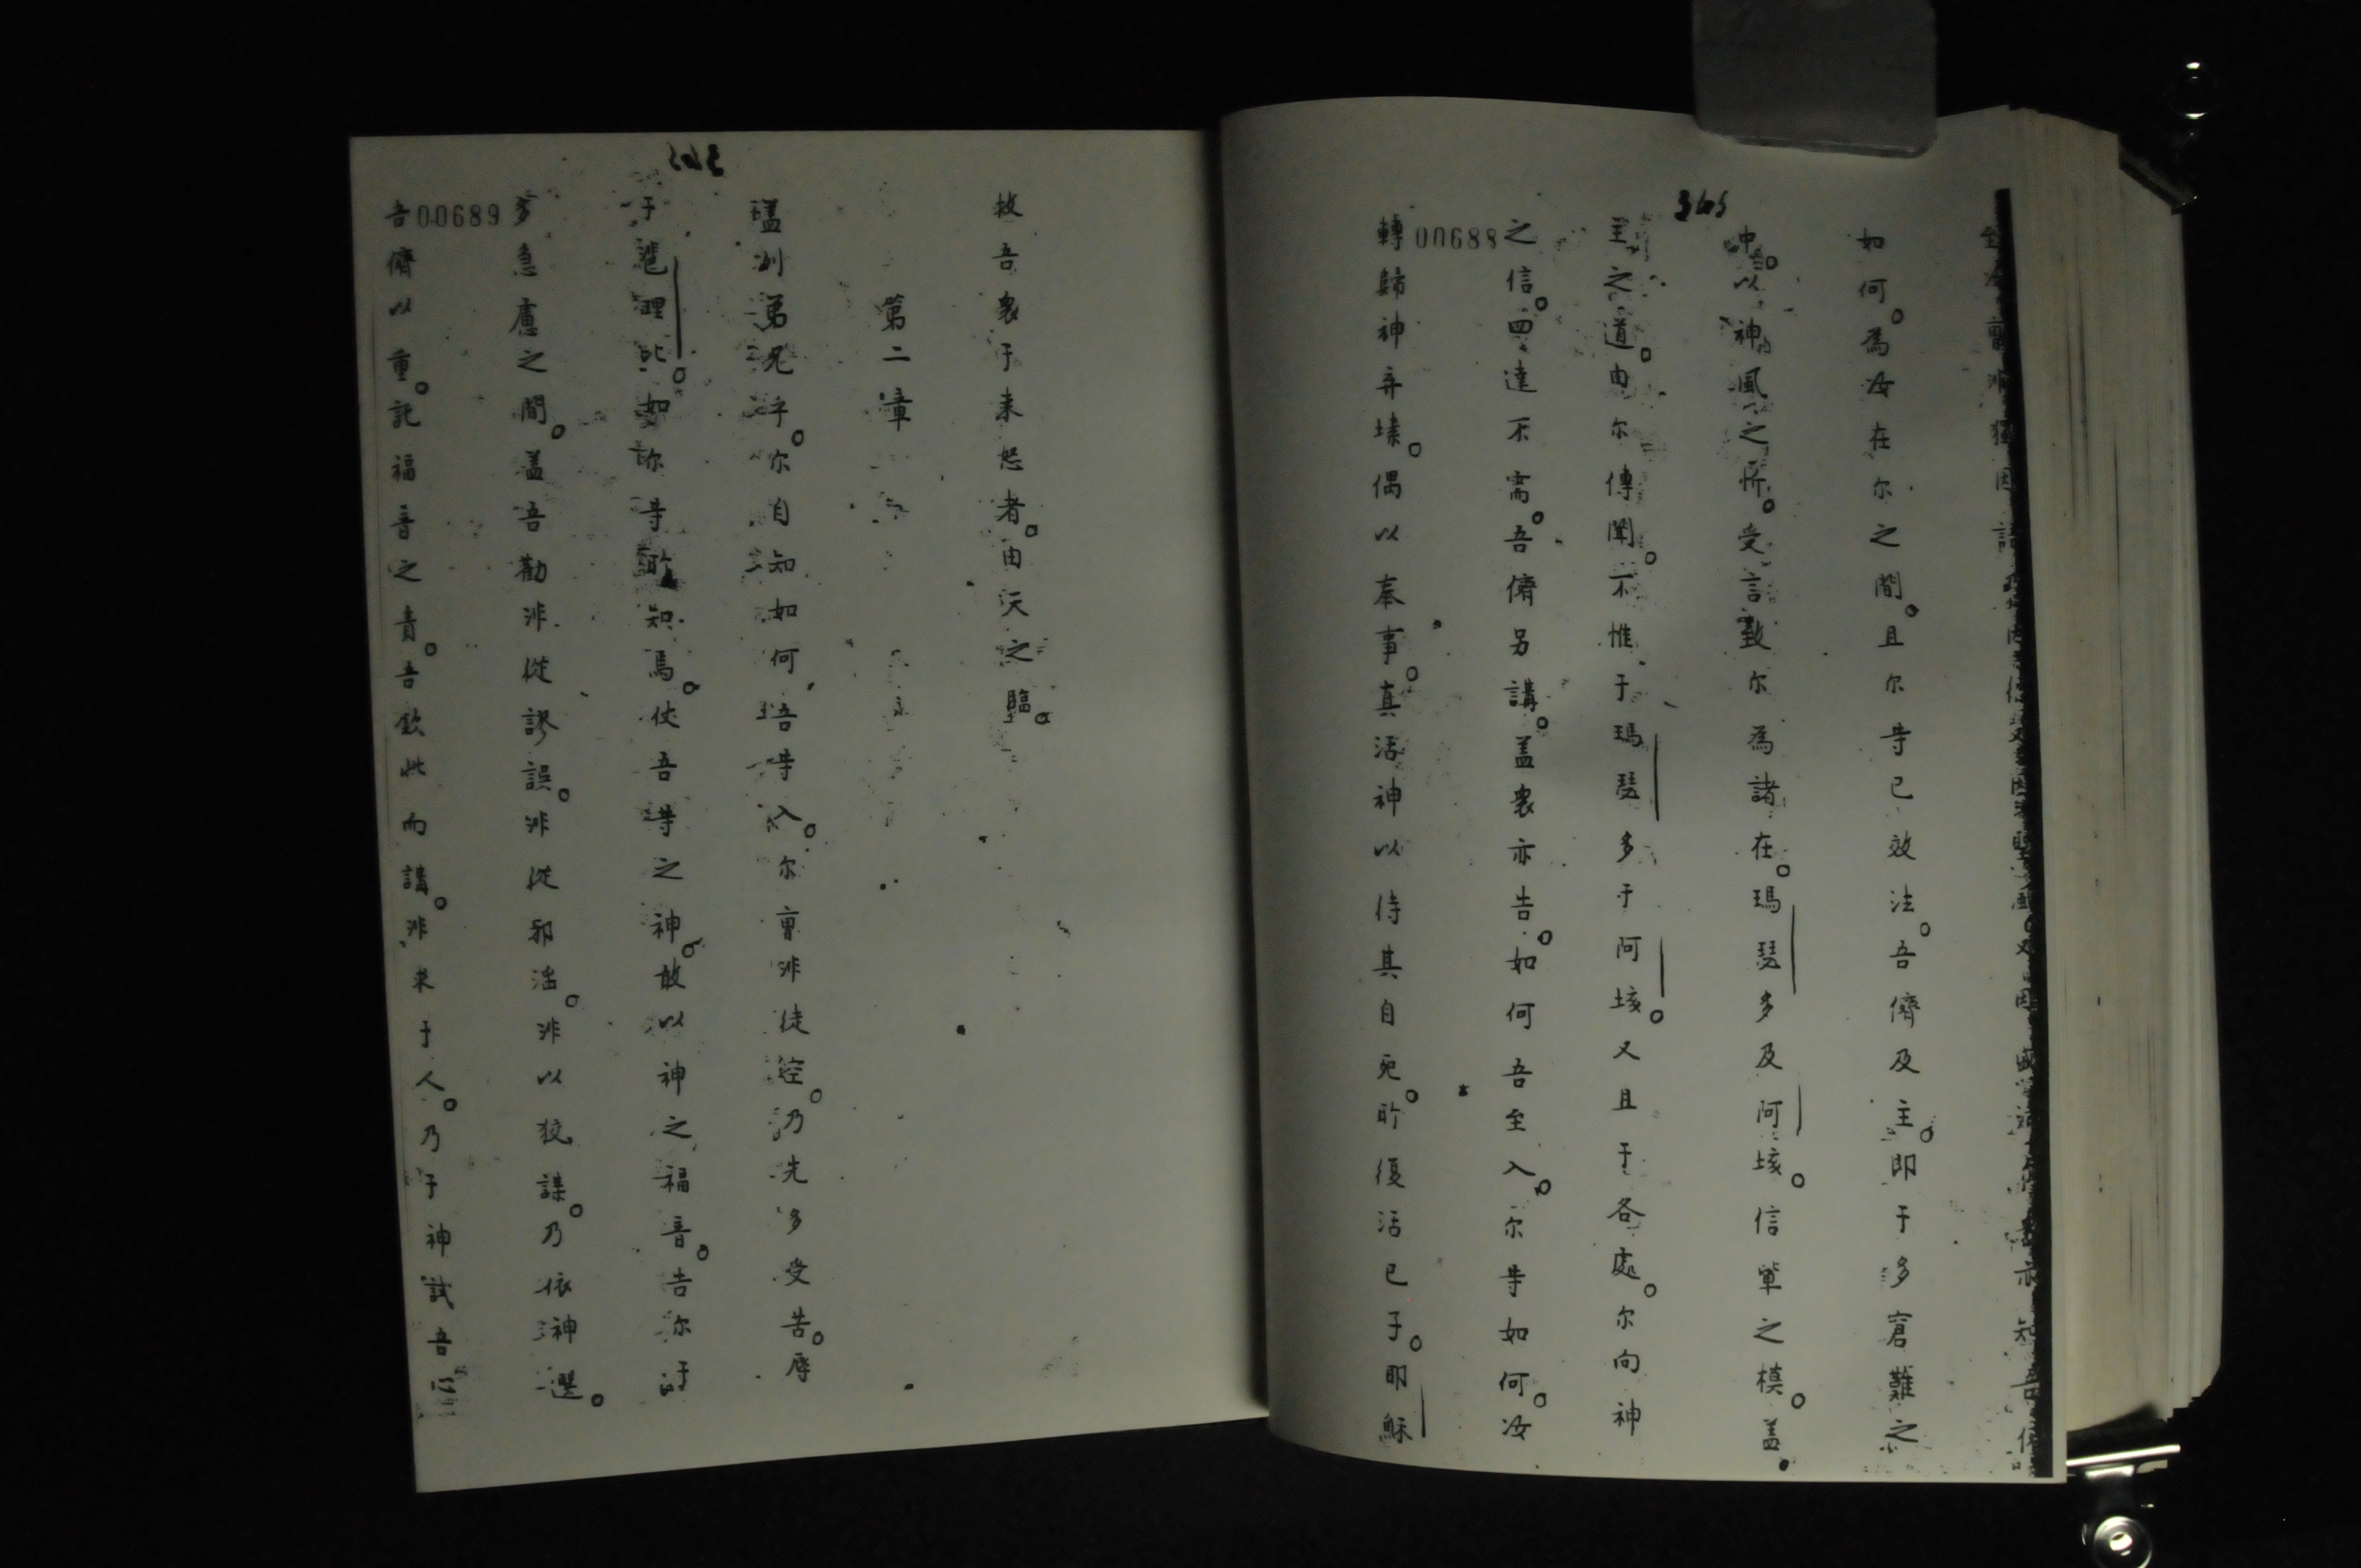 345
如何。為汝在尔之間。且尔等已效法。吾儕及主。即于多窘難之
中。以神風之忻。受言致尔為諸在。瑪琵多及阿垓。信輩之模。盖
主之道。由尔傳聞。不惟于瑪琵多于阿垓。又且于各處。尔向神
之信。四達不需。吾儕另講。盖衆亦告。如何吾至入。尔等如何。汝
00688
轉歸神弃塐。偶以奉事。真活神以待其自死。所復活已子。即穌
救吾衆于来怒者。由天之臨。
第二章
盖刋弟兄乎。尔自知如何吾等入。尔曾非徒空。乃先多受苦。辱
于彼理比。如尔等所知焉。伏吾等之神。敢以神之福音。告尔于
多急慮之間。盖吾勸非從謬誤。非從邪滛。非以狡謀。乃依神選。
00689
吾儕以重。託福音之責。吾欽此而講。非来于人。乃于神試吾心